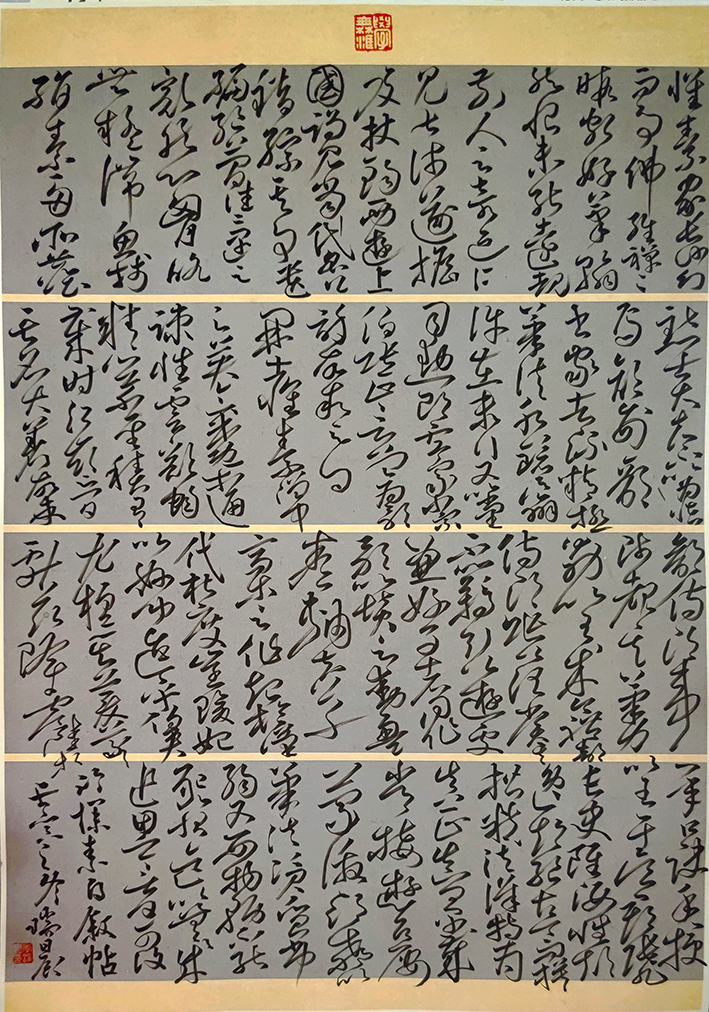 懷素家長沙幼
而事佛經禪之
暇頗好筆翰
然恨未能遠覩
前人之奇迹所
見甚淺遂擔
笈杖錫西遊上
國謁見當代名公
錯綜其事遺
編絶簡往往遇之
豁然心胸略
無疑滯魚牋
絹素多所塵
點士大夫不以爲怪
焉顔刑部
書家者流精極
筆法水鏡之辨
許在末行又以尚書
司勲郎盧象小宗
伯張正言曾爲歌
詩故叙之曰
開士懷素僧中
之英氣概通
疎性靈豁暢
精心草聖積有
歲時江嶺之間
其名大著故吏
部侍郎韋公
陟覩其筆力
勗以有成今禮部
侍郎張公謂賞其
不羈引以遊處
兼好事者同作
歌以贊之動盈
卷軸夫草
稿之作起於漢
代杜度崔瑗始
以妙聞迨乎伯英
尤擅其美羲
獻兹降虞陸相承
口訣手授
以至于吳郡張旭
長史雖姿性顛
逸超絶古今而模
楷精法詳特爲
真正真卿早歲
常接遊居屢
蒙激昂教以
筆法資質劣
弱又嬰物務不能
懇習迄以無成
追思一言何可復
得 素自叙帖
瑞田